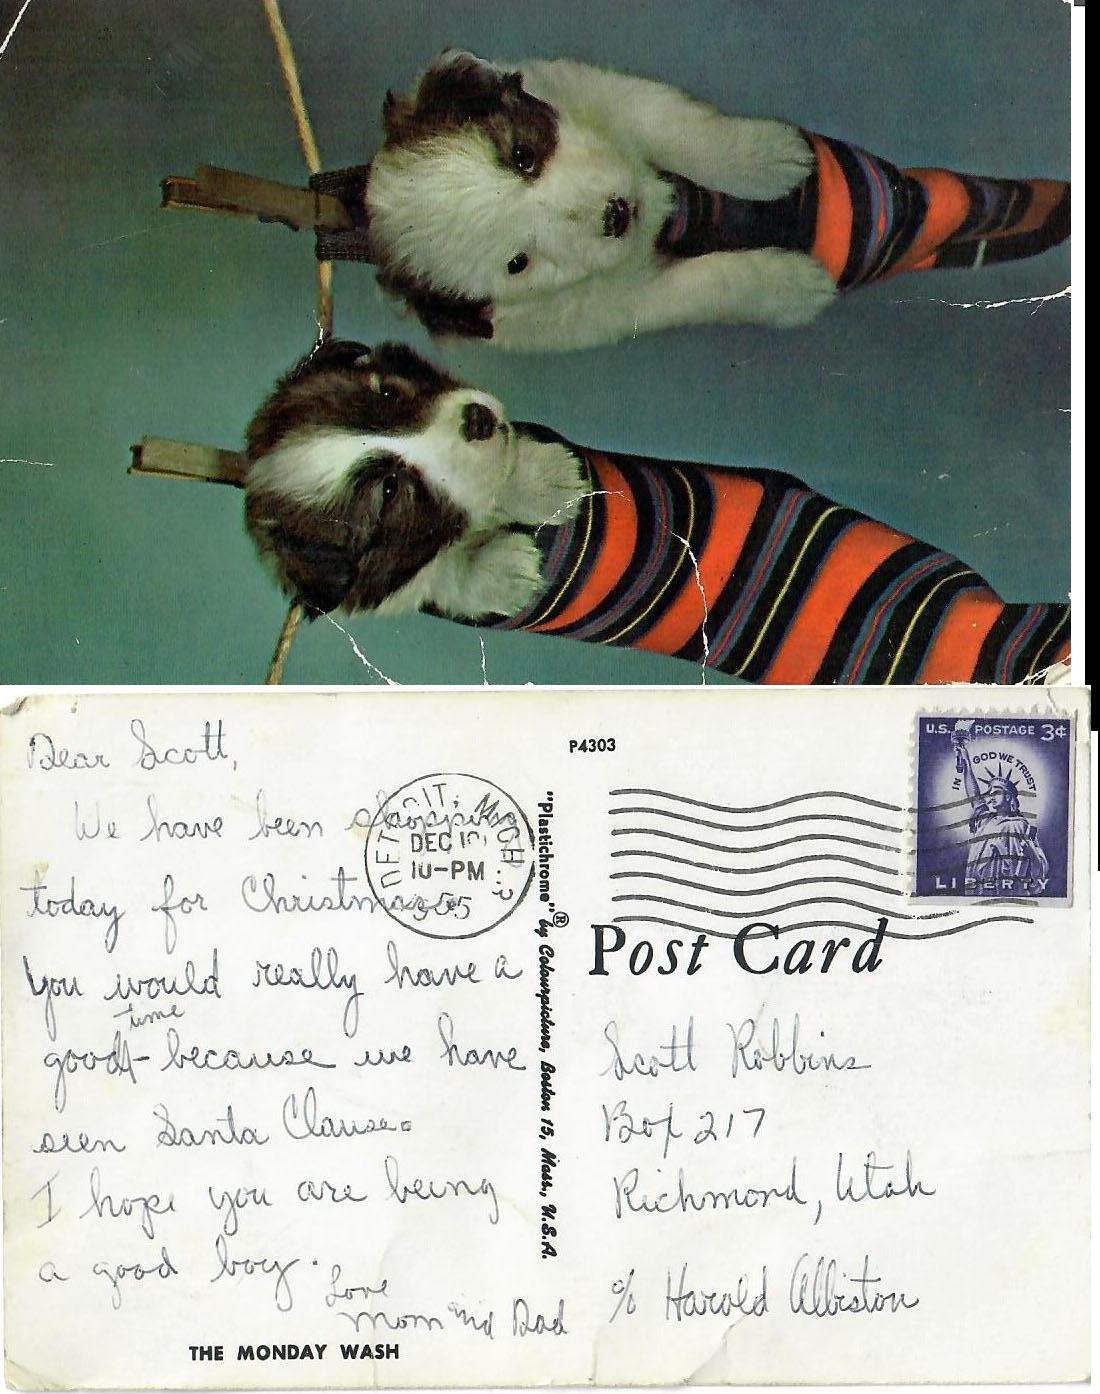 Dear Scott,
We have been shopping
today for Christmas
You would really have a
time
good - because we have
seen Santa Clause.
I hope you are being
a good boy.
Love
Mom and Dad
THE MONDAY WASH
P4303
DETROIT, MICH.
DEC
10-PM
1955
"Plastichrome"® by Colourpicture, Boston 15, Mass., U.S.A.
U.S. POSTAGE 3¢
IN GOD WE TRUST
LIBERTY
Post Card
Scott Robbins
Box 217
Richmond, Utah
c/o Harold Albiston